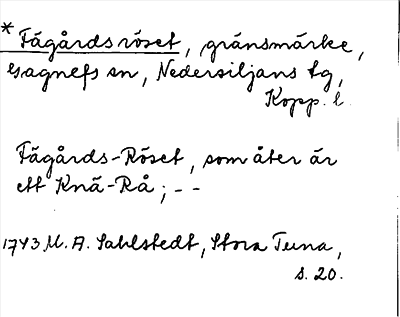 * Fägårdsröset, gränsmärke,
Gagnefs sn, Nedersiljans tg,
Kopp. l.
Fägårds-Röset, som åter är
ett Knä-Rå; - -
1743 M. A. Sahlstedt, Stora Tuna,
s. 20.